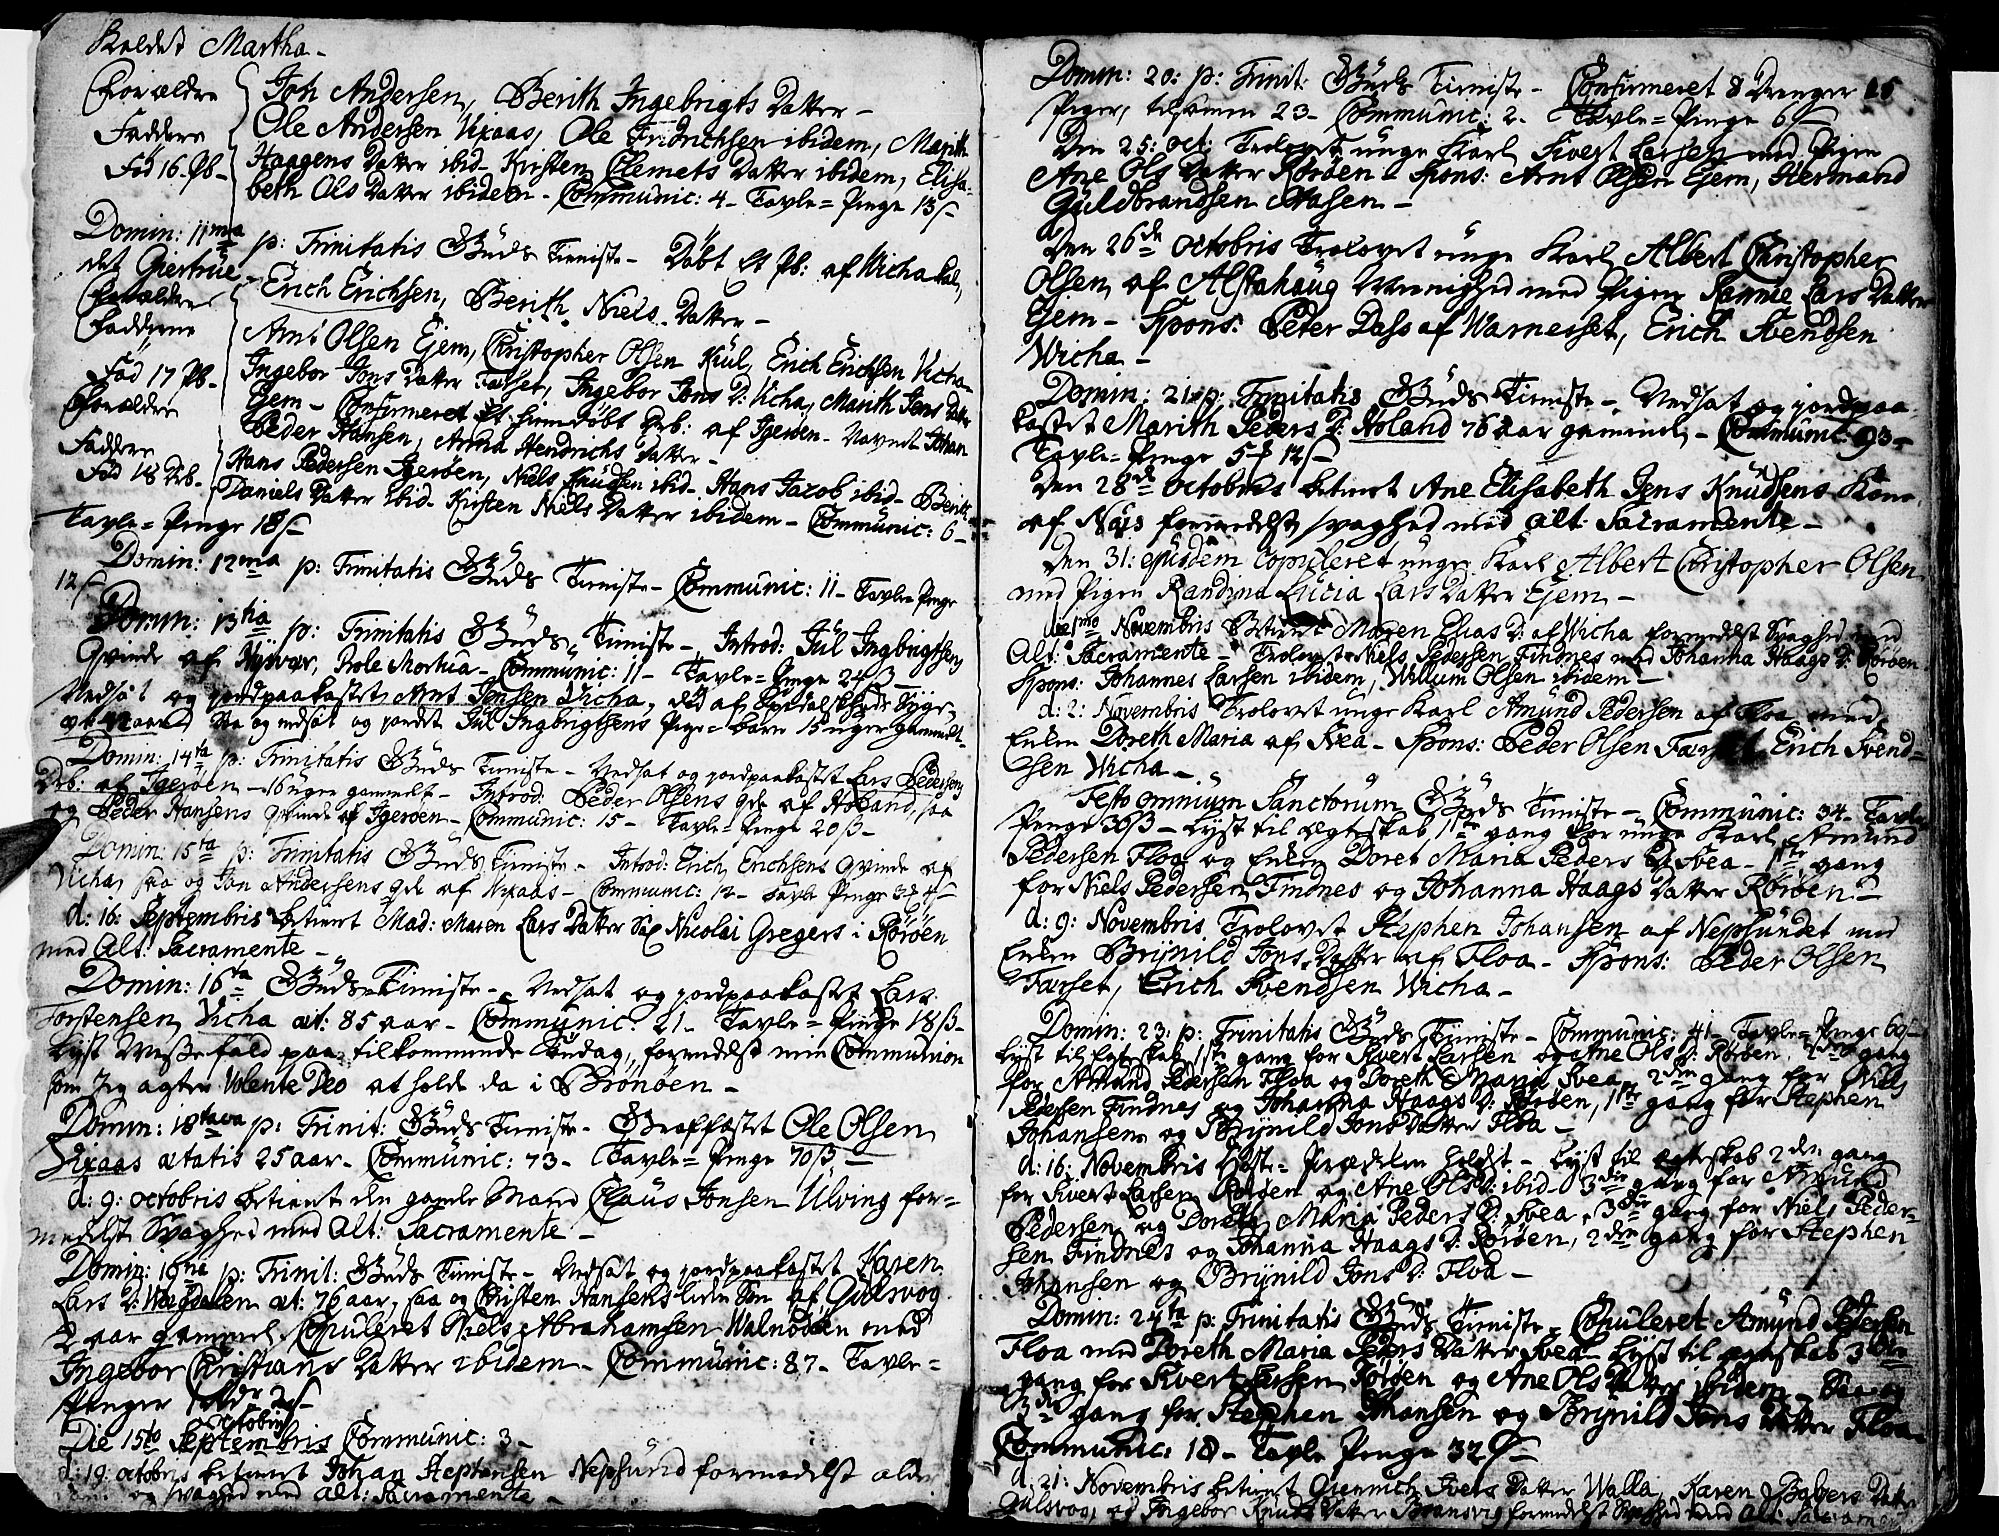 Kaldet Martha –
Forældre Joh Andersen, Berith Ingebrigts Datter –
Faddere Ole Andersen Vixaas, Ole Fridrichsen ibidem, Marith
Fød 16 Pb – Haagens Datter ibid – Kirsten Clemets Datter ibidem, Elisa-
beth Ols Datter ibidem – Communic: 4 – Tavle = Penge 13 ß
Domin: 11ma p: Trinitatis Guds Tieniste – Døbt Et Pb: af Wicha kal,
det Giertrue
Forældre Erich Erichsen, Berith Niels Datter –
Fadderne Arnt Olsen Ejem, Christopher Olsen Kiul, Erich Erichsen Vicha
Fød 17 Pb – Ingebor Jons Datter Færset, Ingebor Jons D: Vicha, Marith Jens Datter
Ejem – Confirmeret Et hiemdøbt Drb: af Igerøen – Navnet Johan
Forældre Peder Hansen, Anna Hendrichs Datter –
Faddere Hans Pedersen Igerøen, Niels Knudsen ibid – Hans Jacob ibid – Berith
Fød 18 Drb – Daniels Datter ibid – Kirsten Niels Datter ibidem – Communic: 6 –
Tavle = Penge 18 ß
Domin: 12ma p: Trinitatis Guds Tieniste – Communic: 11 – Tavle = Penge
12 ß
Domin: 13tia p: Trinitatis Guds Tieniste – Introd: Jul Ingbrigtsens
Qvinde af Prole Mortua – Communic: 11 – Tavle = Penge 24 ß
Nedsat og jordpaakastet Arnt Jensen Vicha, død af Spidalskheds Syge,
og nedsat og jordet Jul Ingbrigtsens Pige = barn 15 uger gammelt –
Domin: 14ta p: Trinitatis Guds Tieniste – Nedsat og jordpaakastet Lars Pedersens
Drb: af Igerøen – 16 uger gammelt – Introd: Peder Olsens Qde af Høland, saa
og Peder Hansens Qvinde af Igerøen – Communic: 15 – Tavle = Penge 20 ß –
Domin: 15ta p: Trinitatis Guds Tieniste – Introd: Erich Erichsens Qvinde af
Vicha, saa og Jon Andersens Qde af Vixaas – Communic: 12 – Tavle Penge
d: 16: Septembris betient Mad: Maren Lars Datter Sal Nicolai Gregers i Rørøen
med Alt: Sacramente –
Domin: 16ta Guds Tieniste – Nedsat og jordpaakastet Lars
Torstensen Vicha æt: 85 aar – Communic: 21 – Tavle = Penge 18 ß –
Lyst Messefald paa tilkommende Søndag, formedelst min Communion
som Jeg agter Volente Deo at holde da i Brønøen –
Domin: 18tava p: Trinit: Guds Tieniste – Graffæstet Ole Olsen
Vixaas ætatis 25 aar – Communic: 73 – Tavle = Penge 70 ß –
d: 9: octobris betient den gamle Mand Claus Jonsen Ulving for-
medelst Svaghed med Alt: Sacramente –
Domin: 19na p: Trinit: Guds Tieniste – Nedsat og jordpaakastet Karen
Lars D: æt: 76 aar, saa og Christen Hansens liden Søn af Gulsvog
2 aar gammel – Copuleret Niels Abrahamsen Walnoden med
Ingebor Christians Datter ibidem – Communic: 87 – Tavle =
Penger
octobris
Die 15to Septembris Communic: 3 –
d: 19: octobris betient Johan Stephensen Nepsund formedelst alder
og svaghed med Alt: Sacramente –
Domin: 20: p: Trinit: Guds Tieniste – Confirmeret 8 Drenger 25
Piger, tilsamen 23 – Communic: 2 – Tavle = Penge 6 ß
Den 25: oct: Trolovet unge Karl Sivert Larsen med Pigen
Ane Ols Datter Rørøen – Spons: Arnt Olsen Ejem, Hermand
Guldbrandsen Aasen –
Den 26de octobris Trolovet unge Karl Albert Christopher
Olsen af Alstahaug Menighed med Pigen Lars Datter
Ejem – Spons: Peter Dass af Warnesset, Erich Svendsen
Wicha –
Domin: 21: p: Trinitatis Guds Tieniste – Nedsat og jordpaa
kastet Marith Peders D: Høland 76 aar gammel – Communic: 93 –
Tavle = Penge 5 12 ß
Den 28de octobris betient Ane Elisabeth Jens Knudsens Kone
af Næs formedelst svaghed med Alt: Sacramente –
Den 31: ejusdem Copuleret unge Karl Albert Christopher Olsen
med Pigen Randina Lucia Lars Datter Ejem –
die 1mo Novembris Betient Maren Elias D: af Vicha formedelst Svaghed med
Alt: Sacramente – Trolovet Niels Pedersen Findnes med Johanna Haags D: Rørøen
Spons: Johannes Larsen ibidem, Willum Olsen ibidem –
d: 2: Novembris Trolovet unge Karl Amund Pedersen af Floa med
Enken Doreth Maria af Svea – Spons: Peder Olsen Færset, Erich Svend-
sen Wicha –
Festo omnium Sanctorum Guds Tieniste – Communic: 34 – Tavle
Penge 36 ß – Lyst til ægteskab 1ste gang for unge Karl Amund
Pedersen Floa og Enken Doret Maria Peders D: Svea – 1ste gang
for Niels Pedersen Findnes og Johanna Haags Datter Rørøen –
d: 9: Novembris Trolovet Stephen Johansen af Nepsundet med
Enken Brynild Jons Datter af Floa – Spons: Peder Olsen
Færset, Erich Svendsen Wicha –
Domin: 23: p: Trinitatis Guds Tieniste – Communic: 41 – Tavle = Penge 60 ß
Lyst til Egteskab 1ste gang for Sivert Larsen og Ane Ols D: Rørøen, 2den gang
for Amund Pedersen Floa og Doreth Maria Svea, 2den gang for Niels
Pedersen Findnes og Johanna Haags D: Rørøen, 1ste gang for Stephen
Johansen og Brynild Jons Datter Floa –
d: 16: Novembris Høste = Prædiken holdet – Lyst til ægteskab 2den gang
for Sivert Larsen Rørøen og Ane Ols D: ibid – 3die gang for Amund
Pedersen og Doreth Maria Peders D: Svea, 3die gang for Niels Peder-
sen Findnes og Johanna Haags D: Rørøen, 2den gang for Stephen
Johansen og Brynild Jons D: Floa –
Domin: 24ta p: Trinitatis Guds Tieniste – Copuleret Amund Pedersen
Floa med Doreth Maria Peders Datter Svea – Lyst til ægteskab 3die
gang for Sivert Larsen Rørøen og Ane Ols Datter ibidem – Saa og
3die gang for Stephen Johansen og Brynild Jons Datter Floa –
Communic: 10 – Tavle Penge 32 ß –
d: 21: Novembris betient Ivers Datter Walla, Karen Datter
Gulsvog, og Ingebor Knuds Datter formedelst Svaghed med Alt: Sacramente